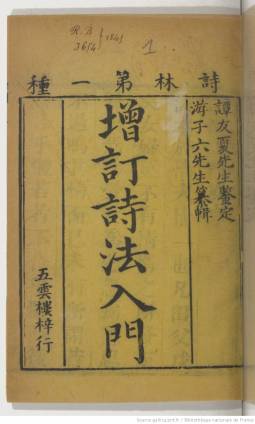 R. B 1841
3654
1.
詩林第一種
譚友夏先生鑒定
游子六先生纂輯
增訂詩法入門
五雲樓梓行
Source gallica.bnf.fr / Bibliothèque nationale de France